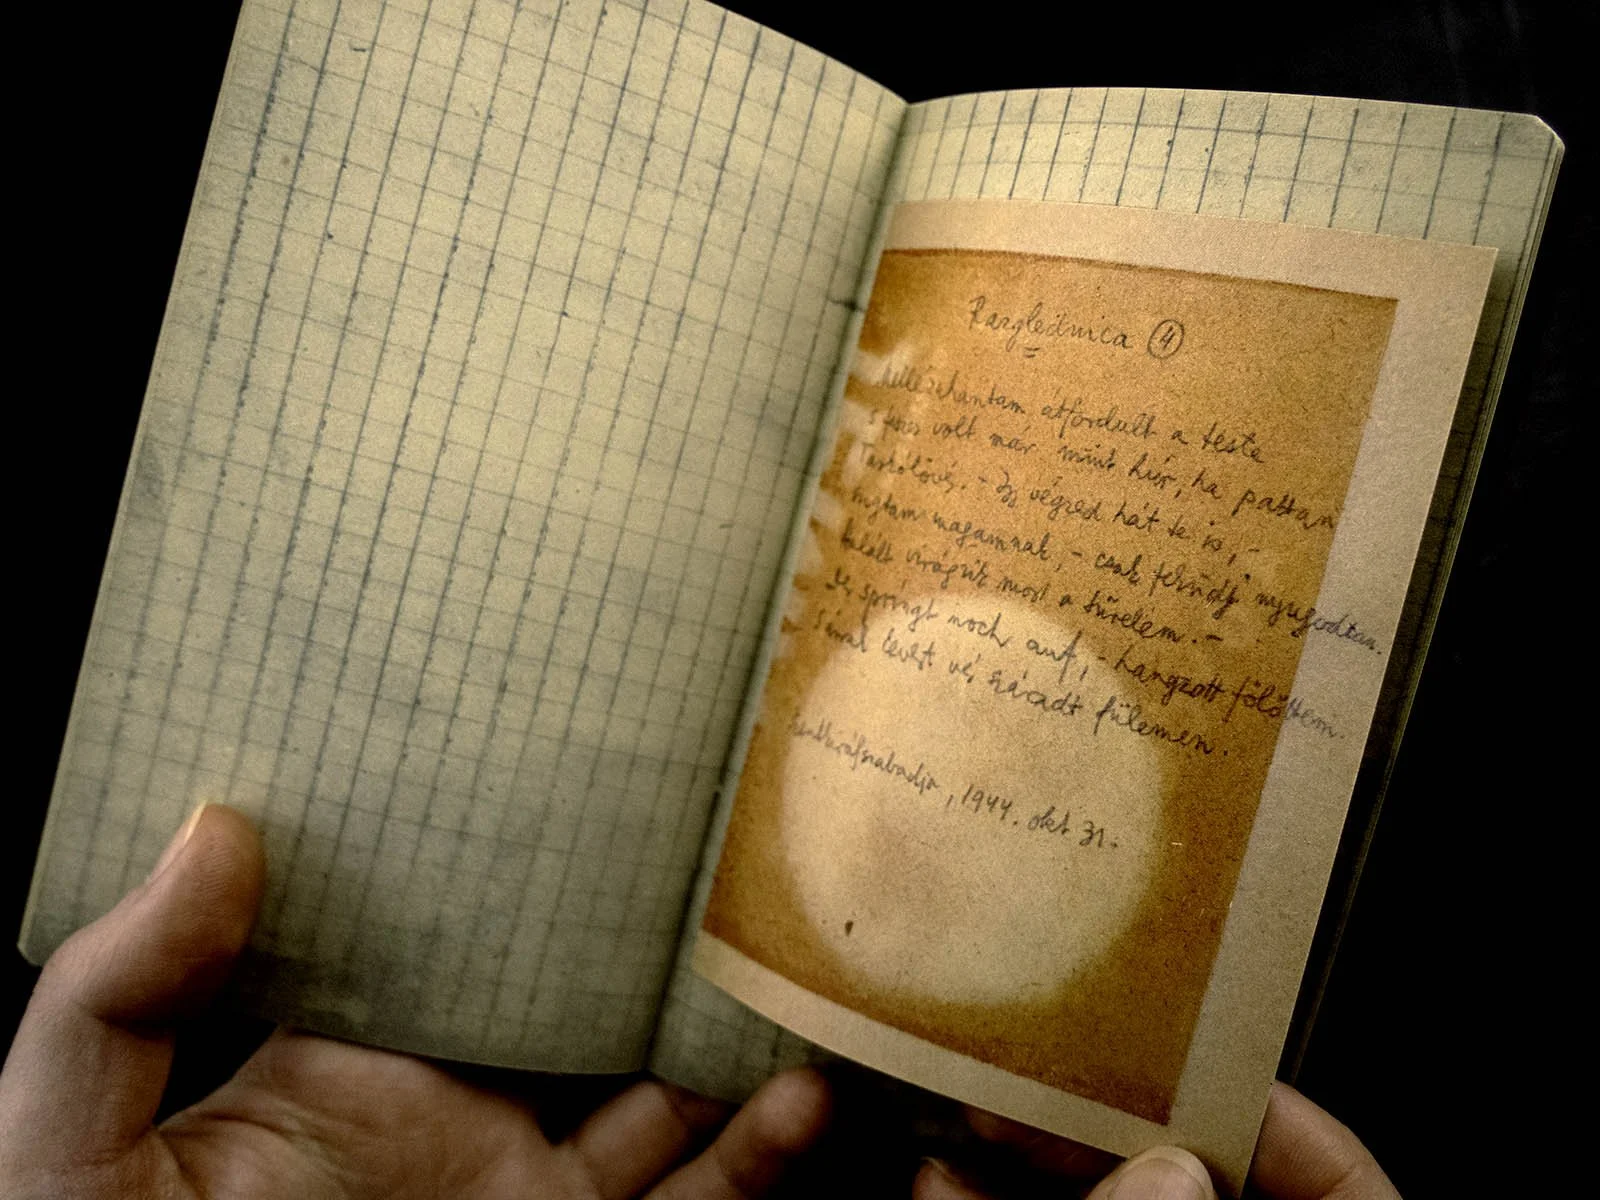 Razglednica ④
Mellézuhantam átfordult a teste
s feszes volt már, mint húr, ha pattan
Tarkólövés. - Igy végzed hát te is, -
sugtam magamnak, - csak feküdj nyugodtan.
Halált virágzik most a türelem. -
Der springt noch auf, - hangzott fölöttem.
Sárral kevert vér száradt fülemen.
Szentkirályszabadja, 1944. okt 31.